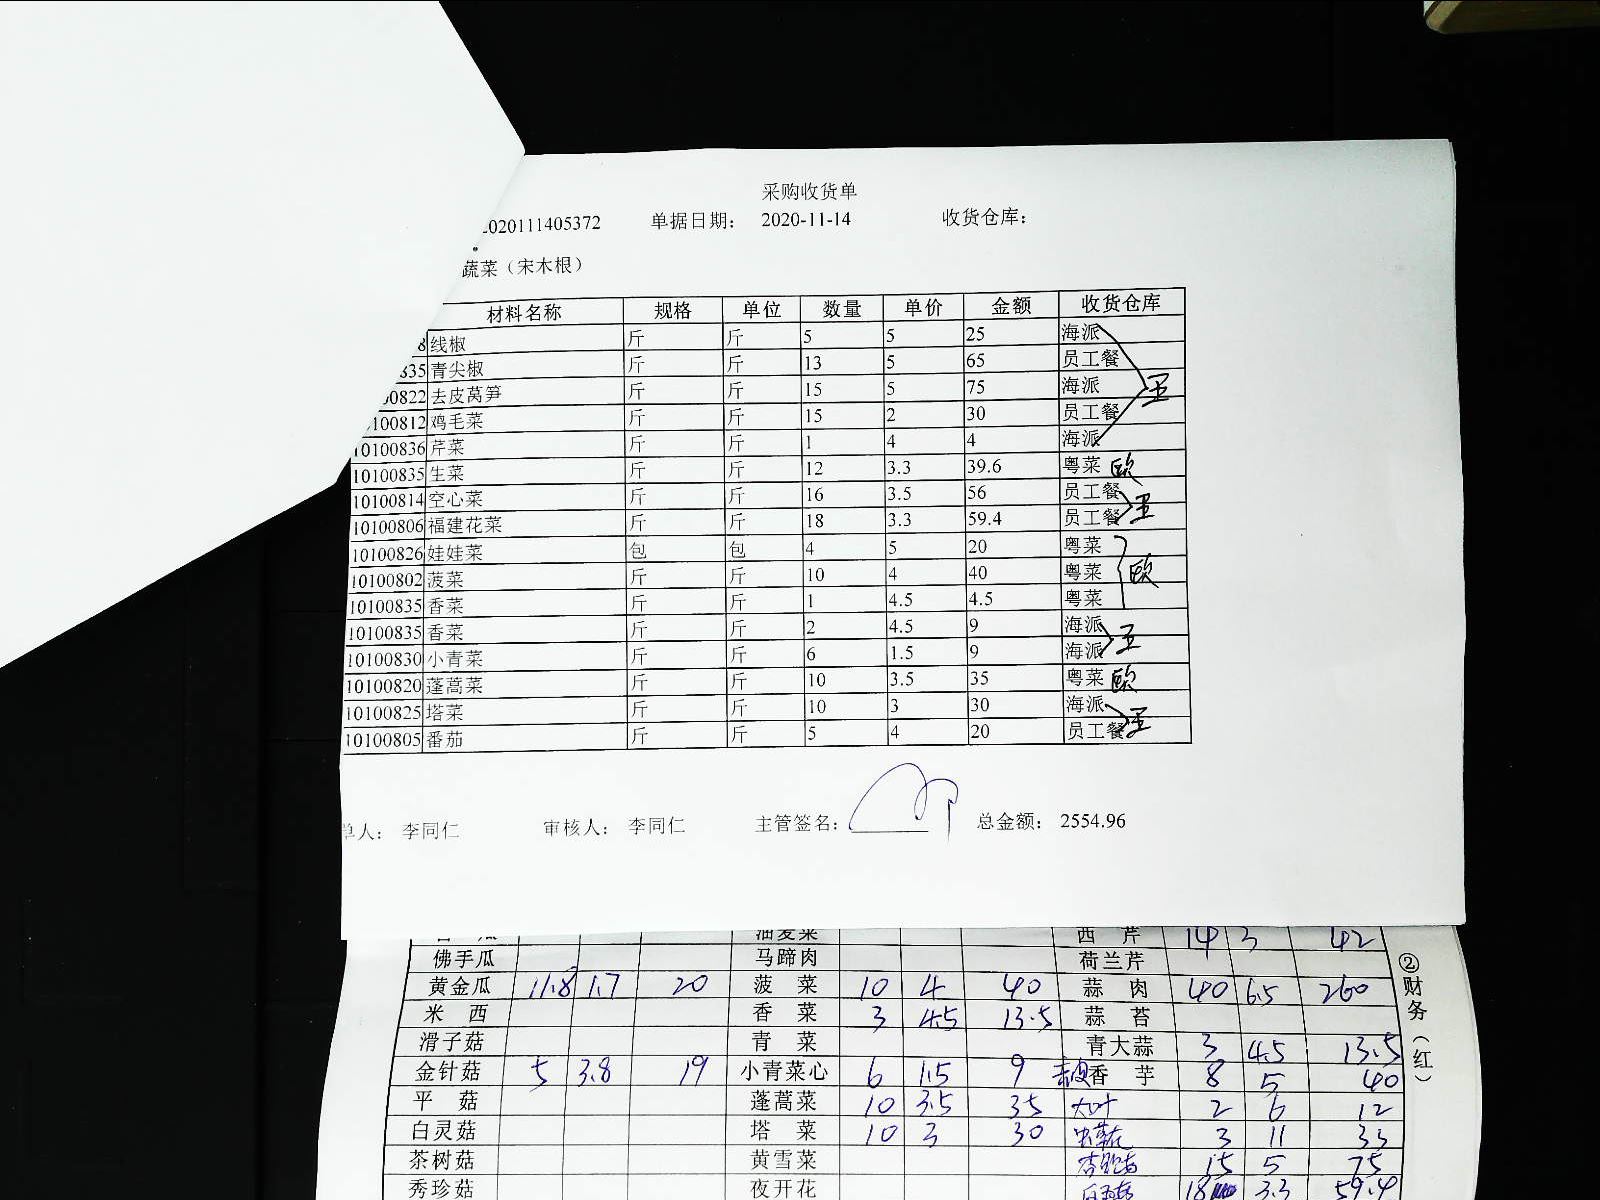 采购收货单
2020111405372 单据日期： 2020-11-14 收货仓库：
蔬菜（宋木根）
材料名称 规格 单位 数量 单价 金额 收货仓库
8 线椒 斤 斤 5 5 25 海派
835 青尖椒 斤 斤 13 5 65 员工餐
00822 去皮莴笋 斤 斤 15 5 75 海派 王
100812 鸡毛菜 斤 斤 15 2 30 员工餐
10100836 芹菜 斤 斤 1 4 4 海派
10100835 生菜 斤 斤 12 3.3 39.6 粤菜 欧
10100814 空心菜 斤 斤 16 3.5 56 员工餐 王
10100806 福建花菜 斤 斤 18 3.3 59.4 员工餐
10100826 娃娃菜 包 包 4 5 20 粤菜
10100802 菠菜 斤 斤 10 4 40 粤菜 欧
10100835 香菜 斤 斤 1 4.5 4.5 粤菜
10100835 香菜 斤 斤 2 4.5 9 海派 王
10100830 小青菜 斤 斤 6 1.5 9 海派
10100820 蓬蒿菜 斤 斤 10 3.5 35 粤菜 欧
10100825 塔菜 斤 斤 10 3 30 海派 王
10100805 番茄 斤 斤 5 4 20 员工餐
单人： 李同仁 审核人： 李同仁 主管签名： 总金额： 2554.96
油麦菜 西芹 14 3 42
佛手瓜 马蹄肉 荷兰芹
黄金瓜 11.8 1.7 20 菠菜 10 4 40 蒜肉 40 6.5 260
米西 香菜 3 4.5 13.5 蒜苔
滑子菇 青菜 青大蒜 3 4.5 13.5
金针菇 5 3.8 19 小青菜心 6 1.5 9 香芋 8 5 40
平菇 蓬蒿菜 10 3.5 35 大叶 2 6 12
白灵菇 塔菜 10 3 30 3 11 33
茶树菇 黄雪菜 15 5 75
秀珍菇 夜开花 18 3.3 59.4
②财务（红）